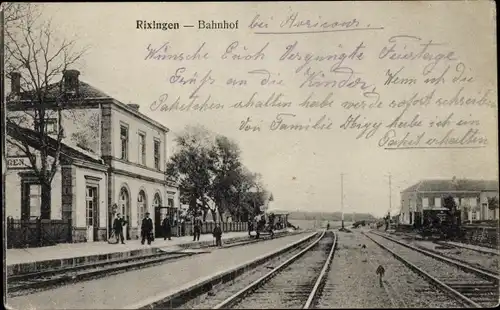 Rixingen — Bahnhof bei Avricour.
Wünsche Euch Vergnügte Feiertage
Gruß an die Kinder
Wenn ich die
Paketchen erhalten habe werde sofort schreibe
Von Familie habe ich ein
Paket erhalten
GEN